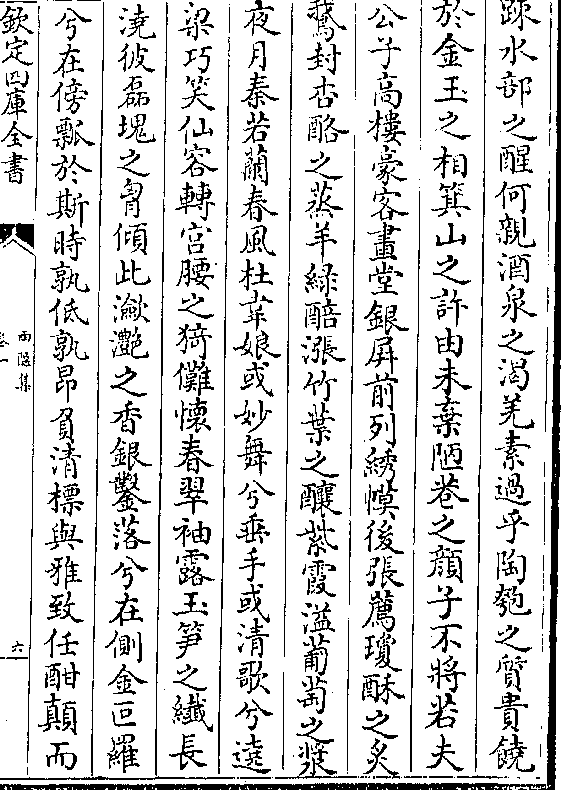 踈水部之醒何親酒泉之渴羌素過乎陶匏之質貴饒
於金玉之相箕山之許由未棄陋巷之顔子不將若夫
公子高樓豪客畫堂銀屏前列綉幙後張薦瓊酥之炙
鵞封杏酪之蒸羊緑醅漲竹葉之釀紫霞溢葡萄之漿
夜月秦若蘭春風杜韋娘或妙舞兮垂手或清歌兮遶
梁巧笑仙容轉宫腰之猗儺懷春翠袖露玉笋之纎長
澆彼磊塊之胷傾此瀲灧之香銀鑿落兮在側金叵羅
兮在傍瓢於斯時孰低孰昂負清標與雅致任酣顛而
欽定四庫全書
卷一
六